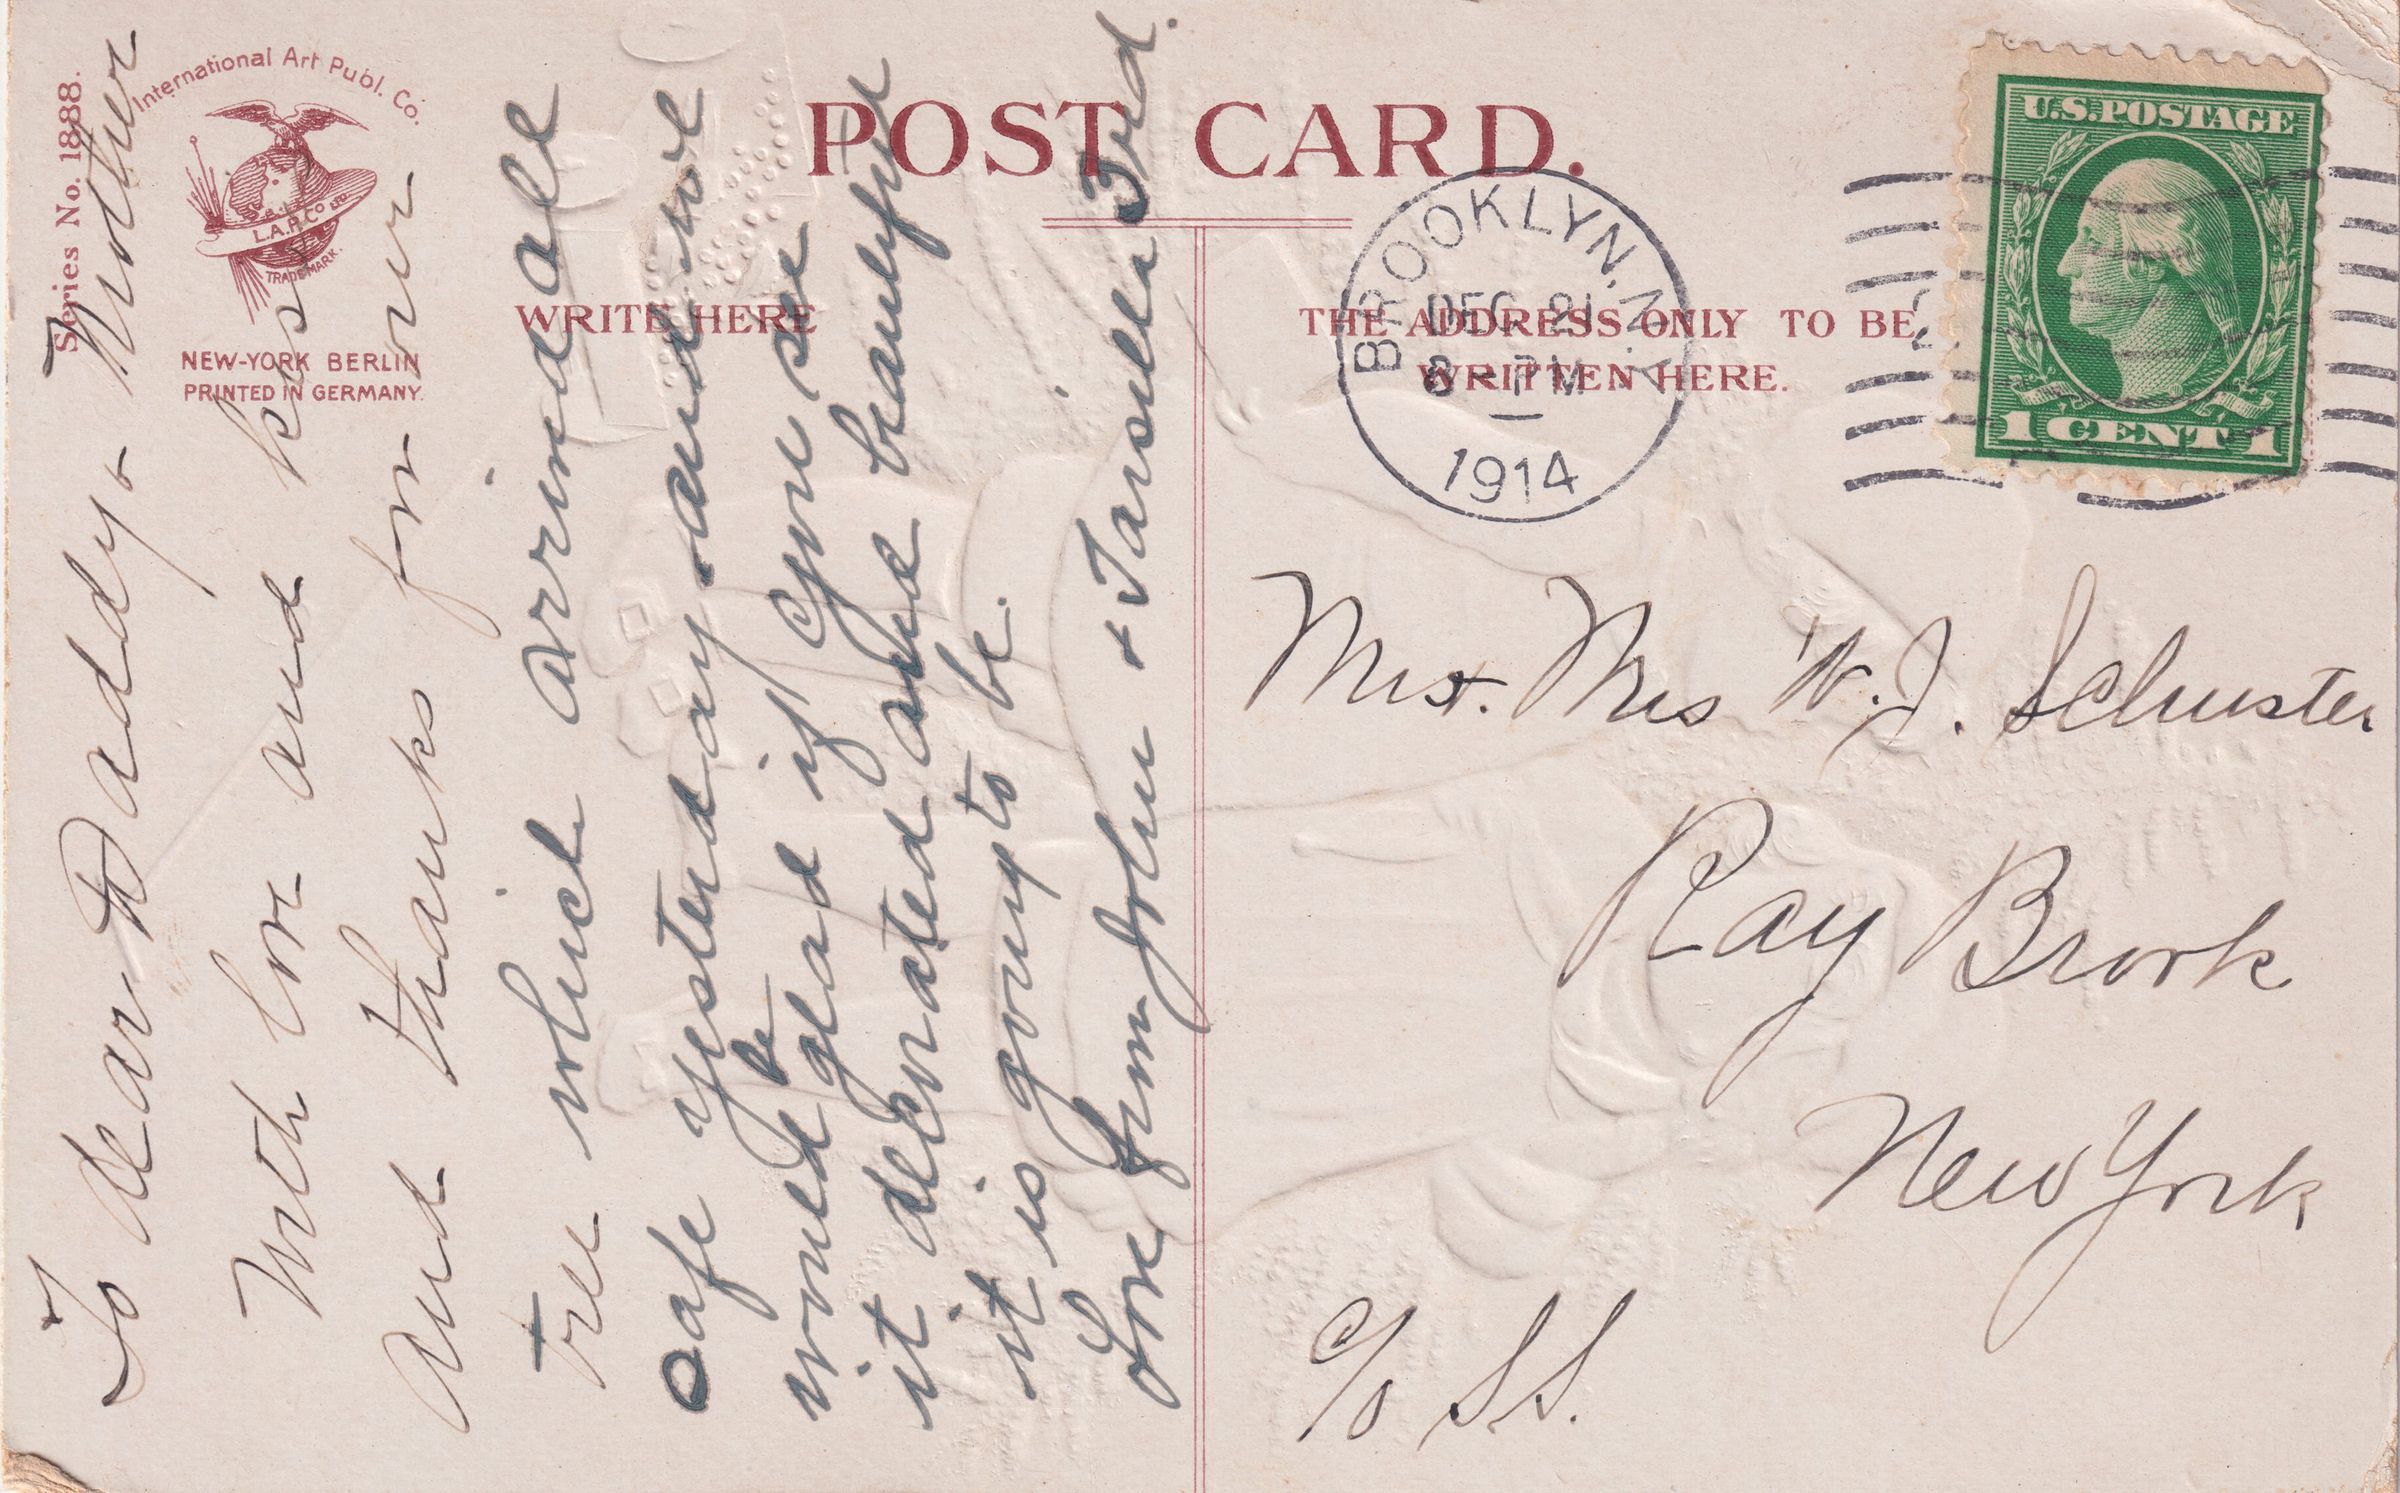 Series No. 1888.
International Art Publ. Co.
I.A.P. Co
TRADE MARK.
NEW-YORK BERLIN
PRINTED IN GERMANY.
POST CARD.
WRITE HERE
THE ADDRESS ONLY TO BE
WRITTEN HERE.
BROOKLYN, N.Y.
DEC 21
8 - PM
1914
U.S. POSTAGE
1 CENT 1
To dear Daddy + Mother
With love and kisses
and thanks for our
tree which arrived all
safe yesterday and we
would be glad if you see
it decorated and beautiful
it is going to be.
Love from John + 3rd.
Mr + Mrs W. J. Schuster
Ray Brook
New York
c/o S.S.